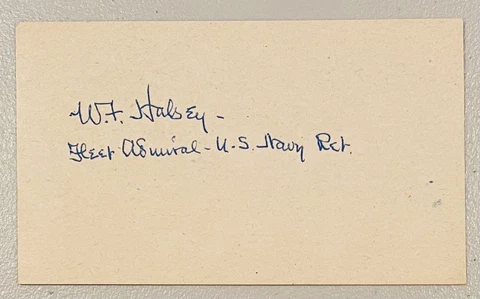 W.F. Halsey -
Fleet Admiral - U.S. Navy Ret.